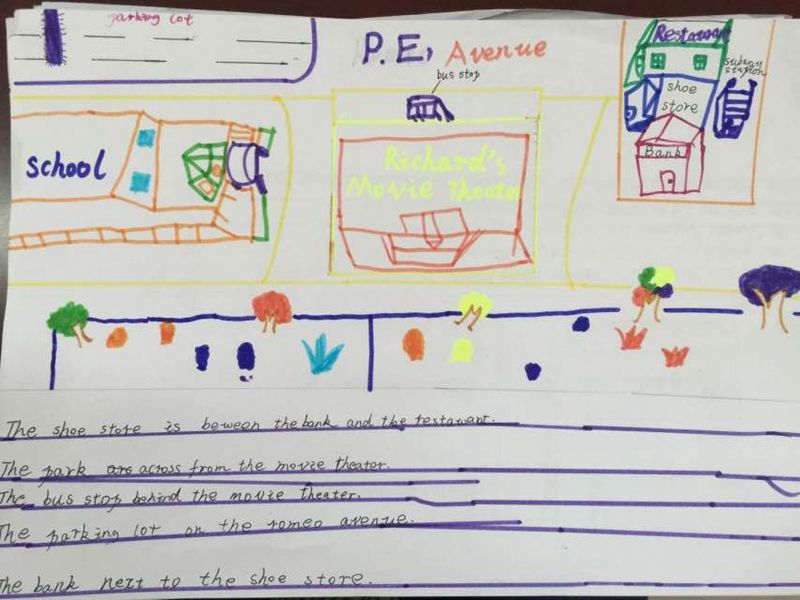 parking lot
P.E, Avenue
bus stop
Restawant
subway
station
shoe
store
Bank
school
Richard's
Movie Theater
The shoe store is beween the bank and the restawant.
The park are across from the movie theater.
The bus stop behind the movie theater.
The parking lot on the romeo avenue.
The bank next to the shoe store.